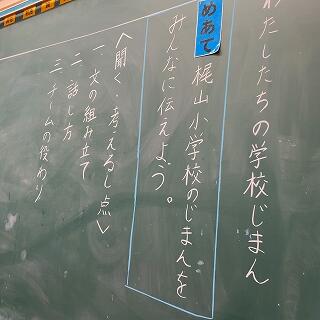 わたしたちの学校じまん
めあて
梶山小学校のじまんを
みんなに伝えよう。
〈聞く・考えるし点〉
一 文の組み立て
二 話し方
三 チームの役わり